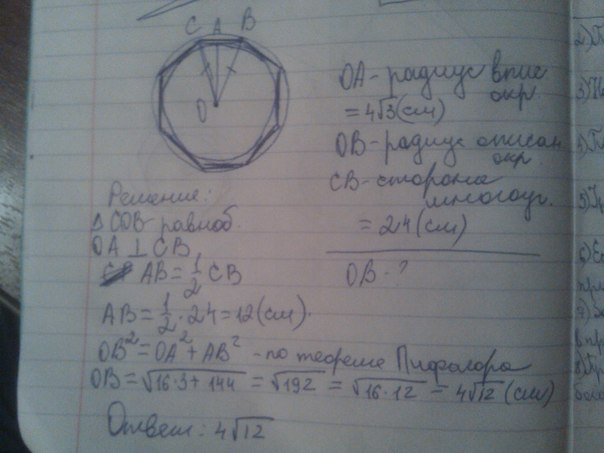 C A B
O
OA - радиус впис
окр.
= 4√3 (см)
OB - радиус описан
окр.
CB - сторона
многоуг.
= 24 (см)
OB - ?
Решение:
△ COB равноб.
OA ⊥ CB
AB = 1/2 CB
AB = 1/2 · 24 = 12 (см).
OB² = OA² + AB² - по теореме Пифагора
OB = √16·3 + 144 = √192 = √16·12 = 4√12 (см)
Ответ: 4√12
2)
3)